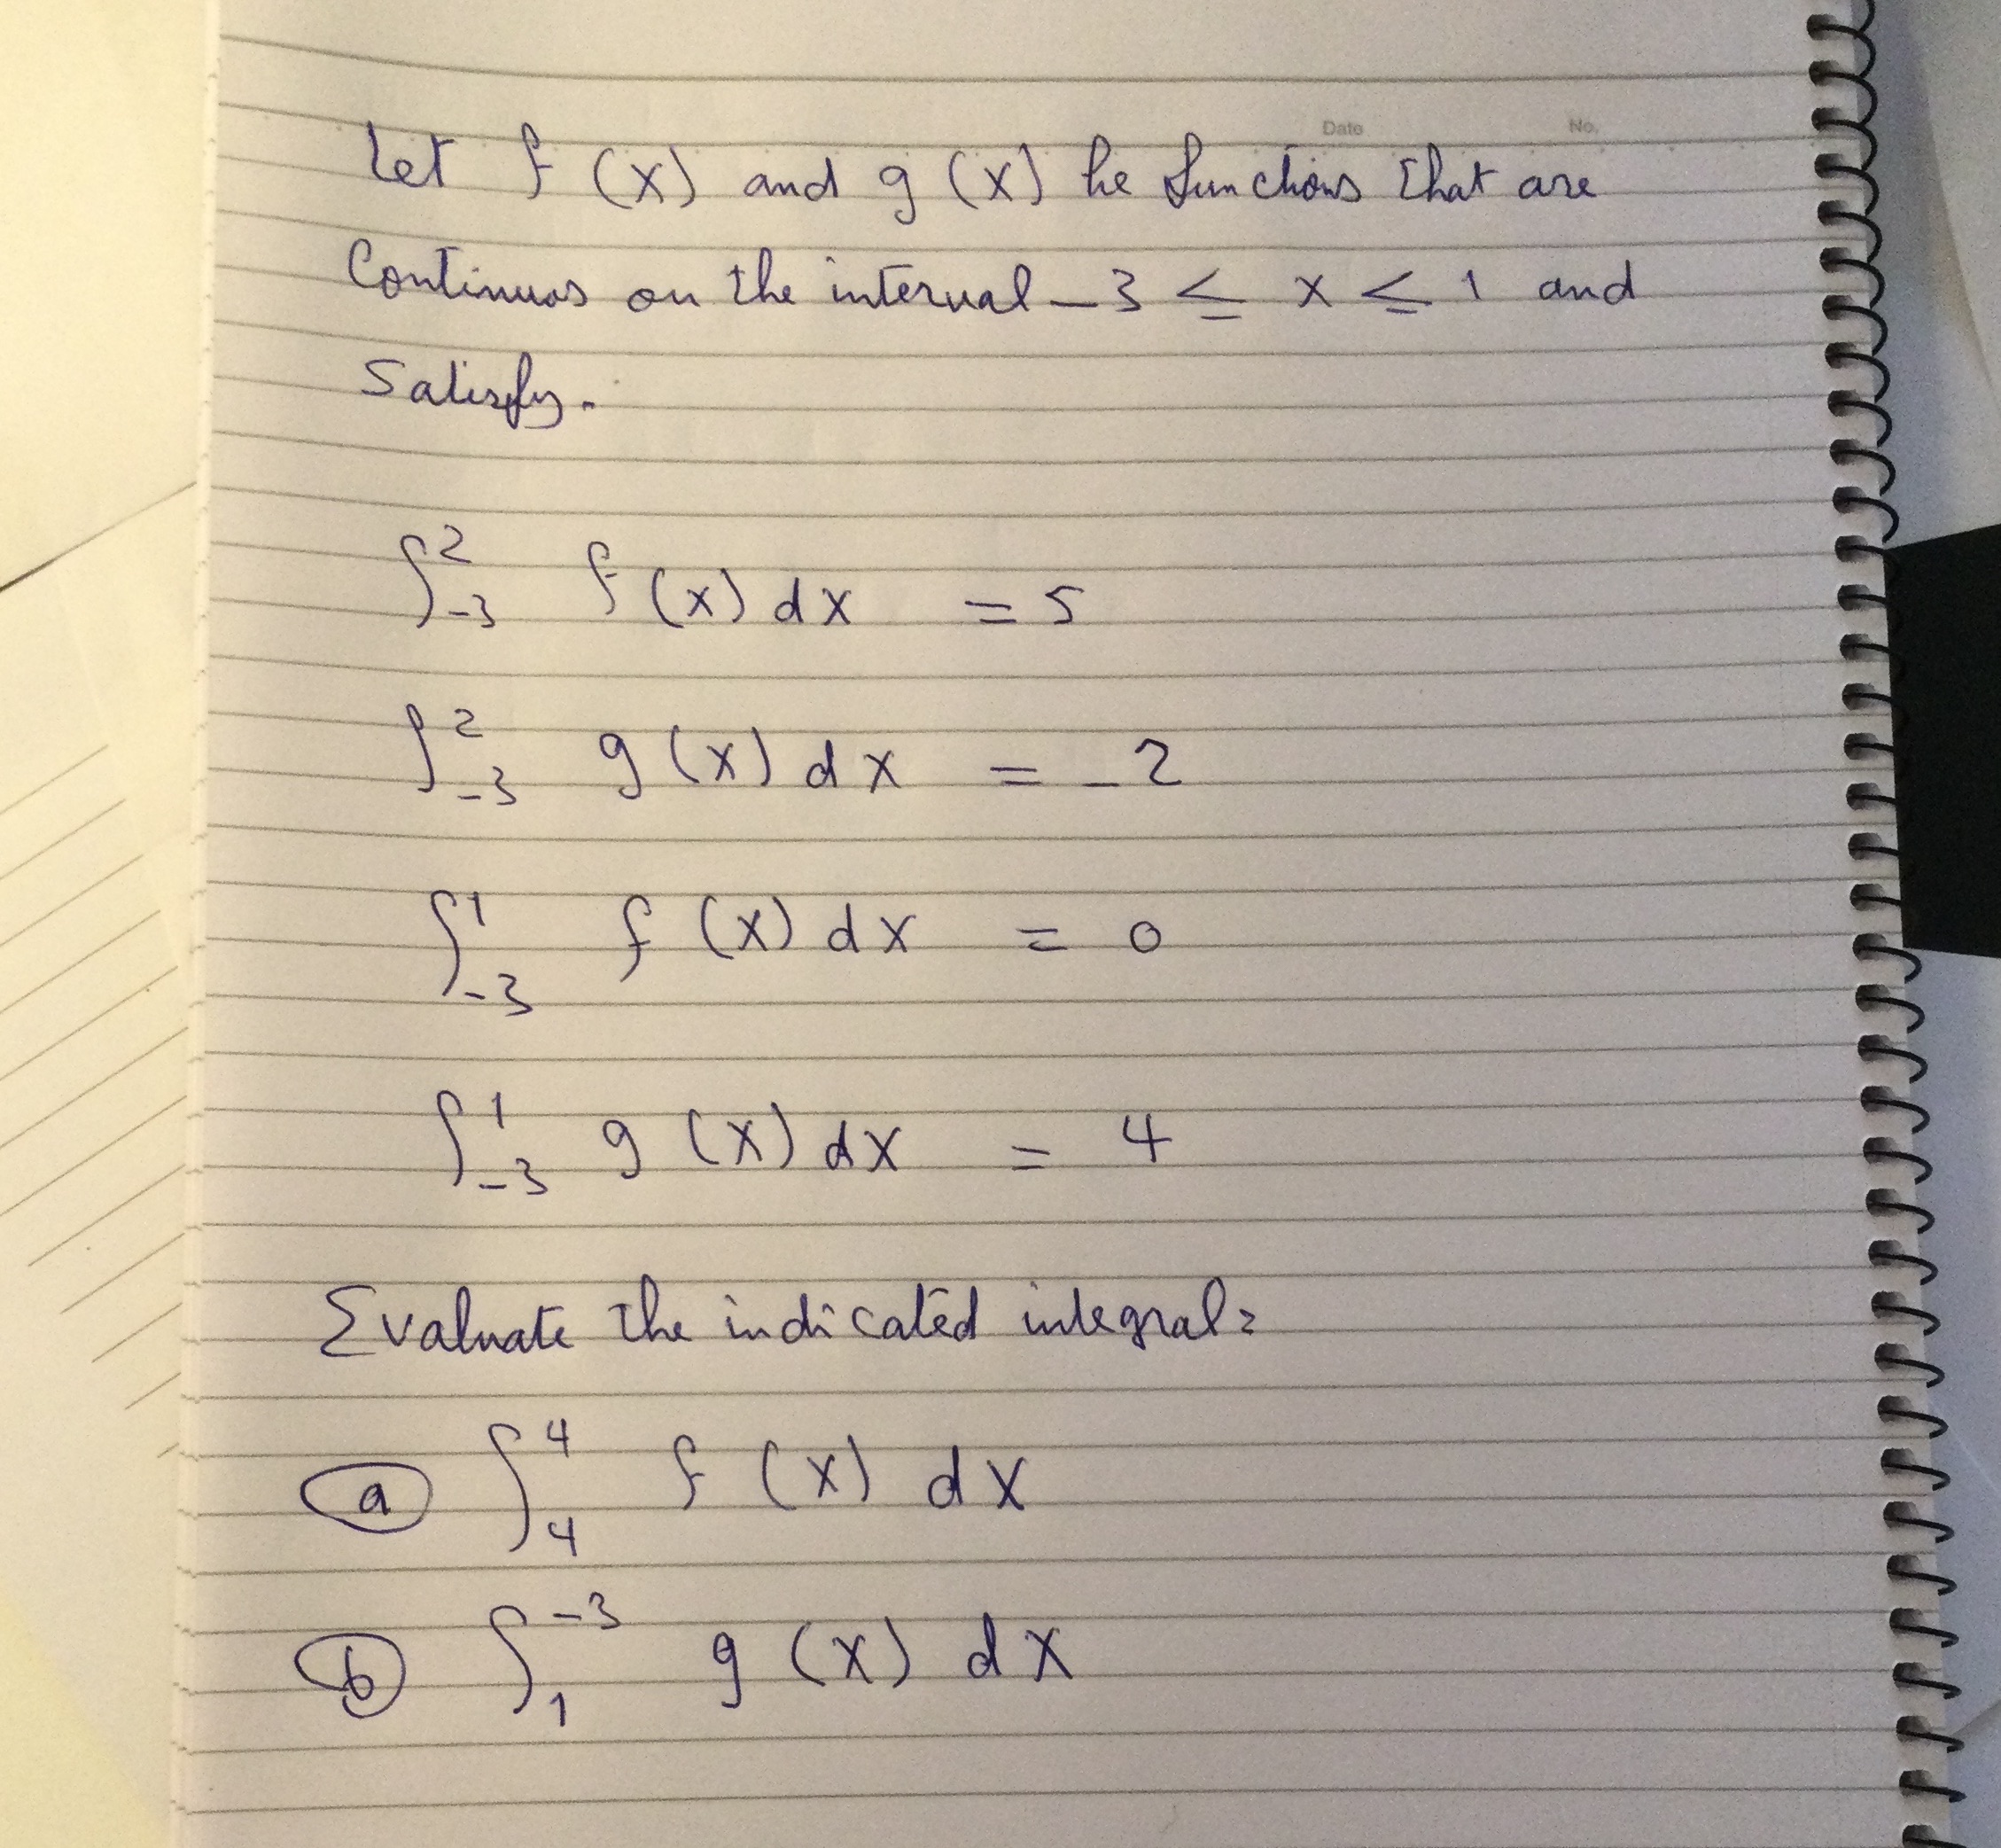 Date No.
Let f (x) and g (x) be functions that are
Continuos on the interval -3 ≤ x ≤ 1 and
Satisfy.
∫_{-3}^{2} f(x) dx = 5
∫_{-3}^{2} g(x) dx = -2
∫_{-3}^{1} f (x) dx = 0
∫_{-3}^{1} g (x) dx = 4
Evaluate the indicated integral:
(a) ∫_{4}^{4} f (x) dx
(b) ∫_{1}^{-3} g (x) dx